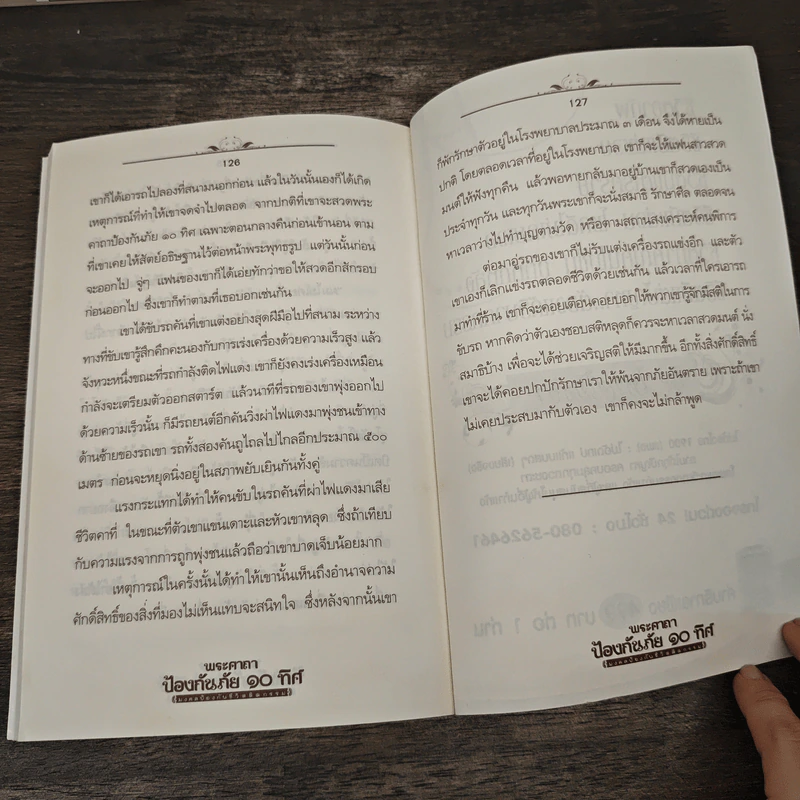 126
เขาก็ได้เอารถไปลองที่สนามนอกก่อน แล้วในวันนั้นเองก็ได้เกิด
เหตุการณ์ที่ทำให้เขาจดจำไปตลอด จากปกติที่เขาจะสวดพระ
คาถาป้องกันภัย ๑๐ ทิศ เฉพาะตอนกลางคืนก่อนเข้านอน ตาม
ที่เขาเคยให้สัตย์อธิษฐานไว้ต่อหน้าพระพุทธรูป แต่วันนั้นก่อน
จะออกไป จู่ๆ แฟนของเขาก็ได้เอ่ยทักว่าขอให้สวดอีกสักรอบ
ก่อนออกไป ซึ่งเขาก็ทำตามที่เธอบอกเช่นกัน
เขาได้ขับรถคันที่เขาแต่งอย่างสุดฝีมือไปที่สนาม ระหว่าง
ทางที่ขับเขารู้สึกคึกคะนองกับการเร่งเครื่องด้วยความเร็วสูง แล้ว
จังหวะหนึ่งขณะที่รถกำลังติดไฟแดง เขาก็ยังคงเร่งเครื่องเหมือน
กำลังจะเตรียมตัวออกสตาร์ต แล้วนาทีที่รถของเขาพุ่งออกไป
ด้วยความเร็วนั้น ก็มีรถยนต์อีกคันวิ่งฝ่าไฟแดงมาพุ่งชนเข้าทาง
ด้านซ้ายของรถเขา รถทั้งสองคันถูไถลไปไกลอีกประมาณ ๕๐๐
เมตร ก่อนจะหยุดนิ่งอยู่ในสภาพยับเยินกันทั้งคู่
แรงกระแทกได้ทำให้คนขับในรถคันที่ฝ่าไฟแดงมาเสีย
ชีวิตคาที่ ในขณะที่ตัวเขาแขนเดาะและหัวเข่าหลุด ซึ่งถ้าเทียบ
กับความแรงจากการถูกพุ่งชนแล้วถือว่าเขาบาดเจ็บน้อยมาก
เหตุการณ์ในครั้งนั้นได้ทำให้เขานั้นเห็นถึงอำนาจความ
ศักดิ์สิทธิ์ของสิ่งที่มองไม่เห็นแทบจะสนิทใจ ซึ่งหลังจากนั้นเขา
พระคาถา
ป้องกันภัย ๑๐ ทิศ
127
ก็พักรักษาตัวอยู่ในโรงพยาบาลประมาณ ๓ เดือน จึงได้หายเป็น
ปกติ โดยตลอดเวลาที่อยู่ในโรงพยาบาล เขาก็จะให้แฟนสาวสวด
มนต์ให้ฟังทุกคืน แล้วพอหายกลับมาอยู่บ้านเขาก็สวดเองเป็น
ประจำทุกวัน และทุกวันพระเขาก็จะนั่งสมาธิ รักษาศีล ตลอดจน
หาเวลาว่างไปทำบุญตามวัด หรือตามสถานสงเคราะห์คนพิการ
ต่อมาอู่รถของเขาก็ไม่รับแต่งเครื่องรถแข่งอีก และตัว
เขาเองก็เลิกแข่งรถตลอดชีวิตด้วยเช่นกัน แล้วเวลาที่ใครเอารถ
มาทำที่ร้าน เขาก็จะคอยเตือนคอยบอกให้พวกเขารู้จักมีสติในการ
ขับรถ หากคิดว่าตัวเองชอบสติหลุดก็ควรจะหาเวลาสวดมนต์ นั่ง
สมาธิบ้าง เพื่อจะได้ช่วยเจริญสติให้มีมากขึ้น อีกทั้งสิ่งศักดิ์สิทธิ์
เขาจะได้คอยปกปักรักษาเราให้พ้นจากภัยอันตราย เพราะถ้าเขา
ไม่เคยประสบมากับตัวเอง เขาก็คงจะไม่กล้าพูด
พระคาถา
ป้องกันภัย ๑๐ ทิศ